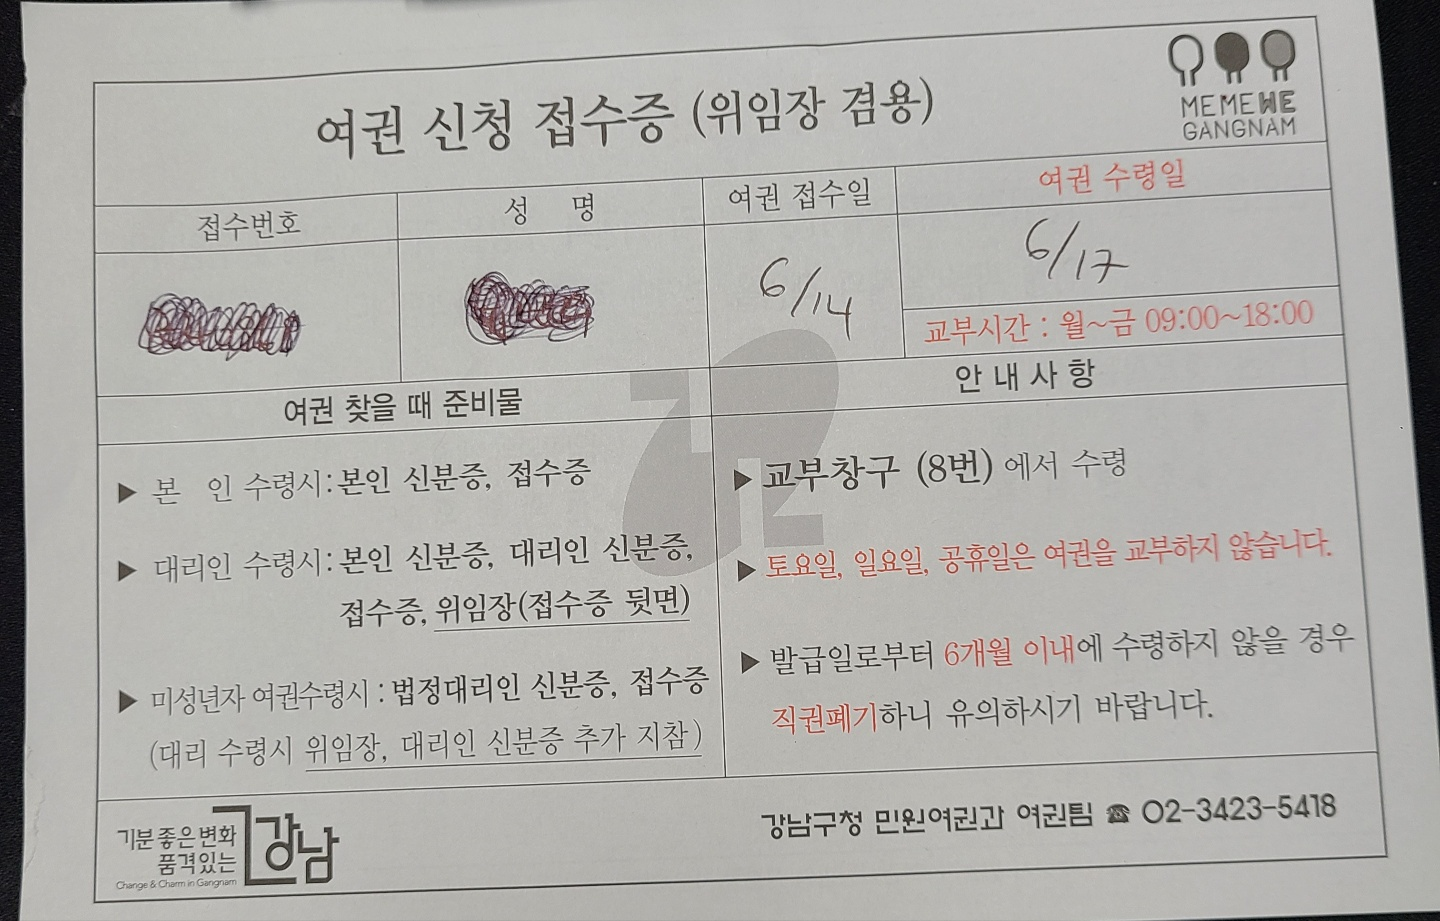 여권 신청 접수증 (위임장 겸용)
MEMEWE
GANGNAM
접수번호
성 명
여권 접수일
여권 수령일
6/14
6/17
교부시간 : 월~금 09:00~18:00
여권 찾을 때 준비물
▶ 본 인 수령시: 본인 신분증, 접수증
▶ 대리인 수령시: 본인 신분증, 대리인 신분증,
접수증, 위임장(접수증 뒷면)
▶ 미성년자 여권수령시 : 법정대리인 신분증, 접수증
(대리 수령시 위임장, 대리인 신분증 추가 지참)
안 내 사 항
▶ 교부창구 (8번) 에서 수령
▶ 토요일, 일요일, 공휴일은 여권을 교부하지 않습니다.
▶ 발급일로부터 6개월 이내에 수령하지 않을 경우
직권폐기하니 유의하시기 바랍니다.
기분 좋은 변화
품격 있는
강남
Change & Charm in Gangnam
강남구청 민원여권과 여권팀 ☎ 02-3423-5418